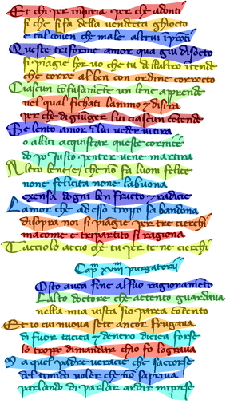 Et chi per ingiuria par che adonti
si che si fa della vendetta ghiotto
e tal convien che male altrui
Questo triforme amor qua giu disotto
si piange hor vo che tu dellaltro intende
che corre al ben con ordine corrotto
Ciascun confusamente un bene aprende
nel qual si cheti lanimo e disira
per che di giugner lui ciascun contende
Se lento amor i lui veder vi tira
o a lui acquistar questa cornice
dopo giusto penter vene martira
Altro bene e che nō fa luom felice
none felicita none la buona
essenza dogni ben fructo e radice
Lamor che ad esso tropo sa bandona
disopra noi si piange per tre cerchi
ma come tripartito si ragiona
Tacciolo accio che tu per te ne cerchi
Capº xviii purgatorii
Posto avea fine al suo ragionamento
Lalto doctore et attento guardava
nella mia vista sio parea contento
Et io cui nuova sete ancor frugava
di fuor tacea et dentro dicea forse
lo tropo dimandar chio fo li grava
Ma quel padre verace che saccorse
del timido voler che nō sapriva
parlando di parlar ardir mi porse